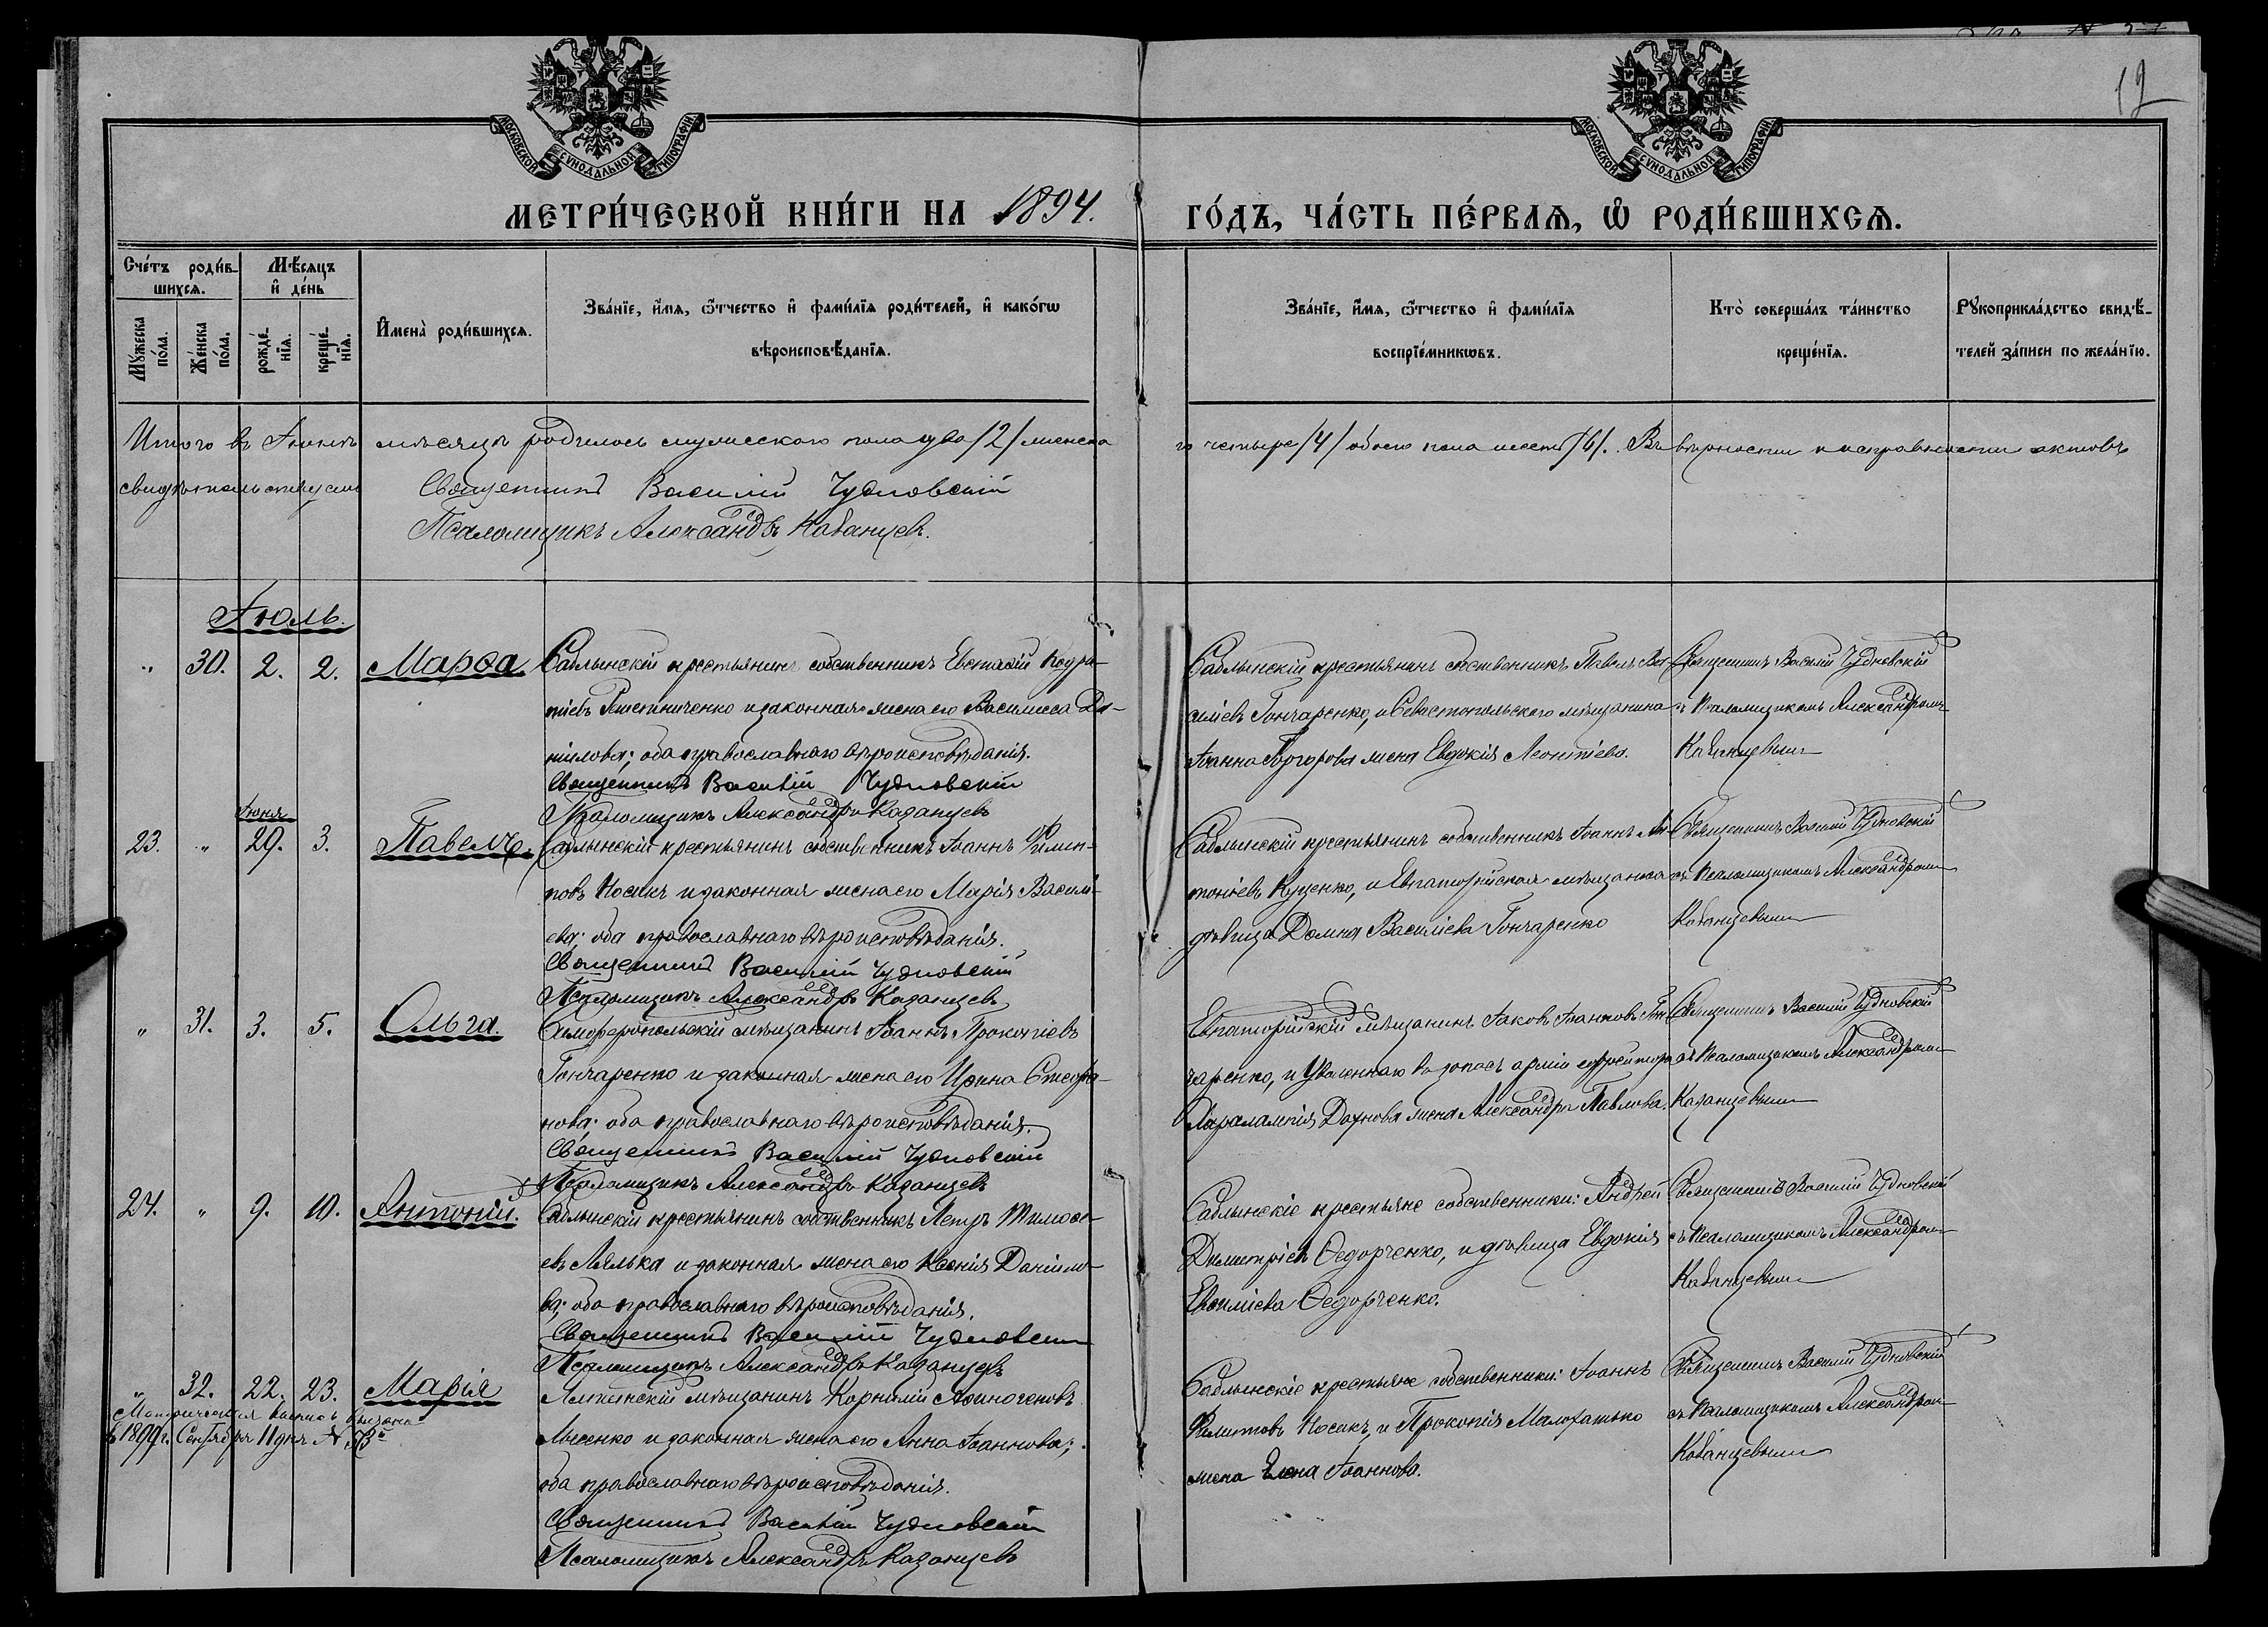 12
МОСКОВСКОЙ СѴНОДАЛЬНОЙ ТИПОГРАФІИ
МОСКОВСКОЙ СѴНОДАЛЬНОЙ ТИПОГРАФІИ
МЕТРИ́ЧЕСКОЙ КНИ́ГИ НА 1894. ГО́ДЪ, ЧА́СТЬ ПЕ́РВАѦ, Ѽ РОДИ́ВШИХСѦ.
Сче́тъ роди́в-
шихсѧ.
Мѣ́сѧцъ
и҆ де́нь
Мꙋ́жеска
по́ла.
Же́нска
по́ла.
рожде́-
нїѧ.
креще́-
нїѧ.
И҆мена̀ роди́вшихсѧ.
Зва́нїе, и҆́мѧ, ѻ҆́тчество и҆ фами́лїѧ роди́телей, и҆ како́гѡ
вѣроисповѣ́данїѧ.
Зва́нїе, и҆́мѧ, ѻ҆́тчество и҆ фами́лїѧ
воспрїе́мникѡвъ.
Кто̀ соверша́лъ та́инство
креще́нїѧ.
Рꙋкоприкла́дство свидѣ́-
телей за́писи по жела́нїю.
Итого въ Іюнѣ мѣсяцѣ родилось мужескаго пола два /2/ женска
го четыре /4/ обоего пола шесть /6/. Въ вѣрности и исправности актовъ
свидѣтельствуемъ
Священникъ Василій Чудновскій
Псаломщикъ Александръ Казанцевъ.
Іюль.
„ 30. 2. 2. Марѳа
Саблынскій крестьянинъ собственникъ Евстаѳій Кодра-
тіевъ Пшениченко и законная жена его Василисса Да-
ніилова; оба православнаго вѣроисповѣданія.
Священникъ Василій Чудновскій
Псаломщикъ Александръ Казанцевъ
Саблынскій крестьянинъ собственникъ Павелъ Ва-
силіевъ Гончаренко, и Севастопольскаго мѣщанина
Іоанна жена Евдокія Леонтіева.
Священникъ Василій Чудновскій
съ Псаломщикомъ Александромъ
Казанцевымъ
Іюня
23. „ 29. 3. Павелъ.
Саблынскій крестьянинъ собственникъ Іоаннъ Филип-
повъ Носикъ и законная жена его Марія Василі-
ева; оба православнаго вѣроисповѣданія.
Священникъ Василій Чудновскій
Псаломщикъ Александръ Казанцевъ
Саблынскій крестьянинъ собственникъ Іоаннъ Ан-
тоніевъ Куценко, и Евпаторійская мѣщанка
дѣвица Домна Василіева Гончаренко
Священникъ Василій Чудновскій
съ Псаломщикомъ Александромъ
Казанцевымъ
„ 31. 3. 5. Ольга.
Симферопольскій мѣщанинъ Іоаннъ Прокопіевъ
Гончаренко и законная жена его Ирина Стефа-
нова; оба православнаго вѣроисповѣданія.
Священникъ Василій Чудновскій
Псаломщикъ Александръ Казанцевъ
Евпаторійскій мѣщанинъ Іаковъ Іоанновъ Гон-
чаренко, и уволеннаго въ запасъ арміи ефрейтора
Харалампія Дахнова жена Александра Павлова.
Священникъ Василій Чудновскій
съ Псаломщикомъ Александромъ
Казанцевымъ
24. „ 9. 10. Антоній.
Саблынскій крестьянинъ собственникъ Петръ Тимоѳе-
евъ Лялька и законная жена его Ксенія Даніило-
ва; оба православнаго вѣроисповѣданія.
Священникъ Василій Чудновскій
Псаломщикъ Александръ Казанцевъ
Саблынскіе крестьяне собственники: Андрей
Димитріевъ Ѳедорченко, и дѣвица Евдокія
Евѳиміева Ѳедорченко.
Священникъ Василій Чудновскій
съ Псаломщикомъ Александромъ
Казанцевымъ
„ 32. 22. 23. Марія
Метрическая выпись выдана
1899 г. Сентября 11 дня №
Алешкинскій мѣщанинъ Корнилій Аѳиногеновъ
Лысенко и законная жена его Анна Іоаннова;
оба православнаго вѣроисповѣданія.
Священникъ Василій Чудновскій
Псаломщикъ Александръ Казанцевъ
Саблынскіе крестьяне собственники: Іоаннъ
Филиповъ Носикъ, и Прокопія Малофатько
жена Елена Іоаннова.
Священникъ Василій Чудновскій
съ Псаломщикомъ Александромъ
Казанцевымъ